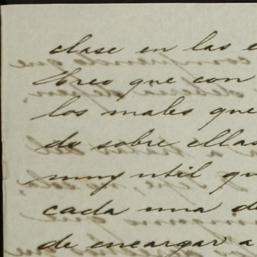 clase en las e
Creo que con
los males que
do sobre ellas
muy util qu
cada una d
de encargar a